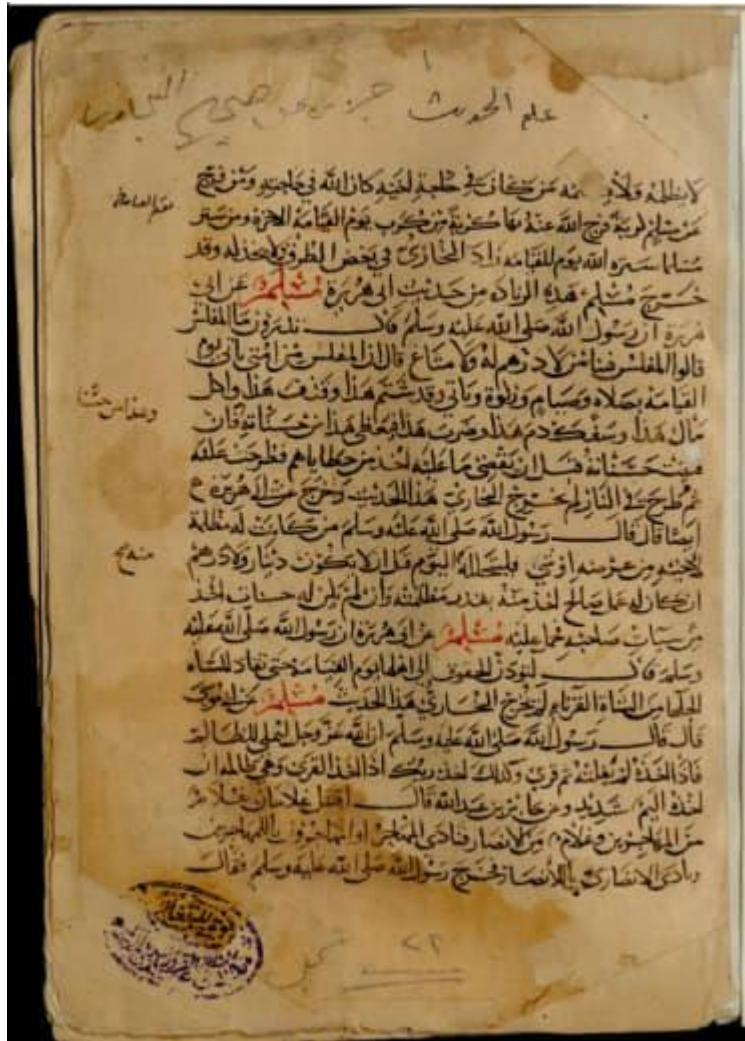 ١
علم الحديث جزء من صحيح
لا يظلمه ولا من كان في حاجة اخيه كان الله في حاجته ومن فرج
عن مسلم كربة فرج الله عنه بها كربة من كرب يوم القيامة ومن ستر
مسلما ستره الله يوم القيامه زاد البخاري في بعض الطرق وقد
خرج مسلم هذه الزياده من حديث ابى هريرة مسلم عن ابى
هريرة ان رسول الله صلى الله عليه وسلم قال تدرون ما المفلس
قالوا المفلس فينا من لا درهم له ولا متاع قال ان المفلس من امتى ياتى يوم
القيامه بصلاه وصيام وزكوة وياتى وقد شتم هذا وقذف هذا واكل
مال هذا وسفك دم هذا وضرب هذا فيعطى هذا من حسناته فان
فنيت حسناته قبل ان يقضى ما عليه اخذ من خطاياهم فطرحت عليه
ثم طرح في النار لم يخرج البخاري هذا الحديث وخرج عن ابى هريرة
ايضا قال قال رسول الله صلى الله عليه وسلم من كانت له مظلمة
لاخيه من عرضه او شى فليتحلله اليوم قبل ان لا يكون دينار ولا درهم
ان كان له عمل صالح اخذ منه بقدر مظلمته وان لم تكن له حسنات اخذ
من سيات صاحبه عليه مسلم عن ابى هريرة ان رسول الله صلى الله عليه
وسلم قال لتودن الحقوق الى اهلها يوم القيامة حتى يقاد للشاه
الجلحا من الشاة القرناء لم يخرج البخاري هذا الحديث مسلم عن ابى موسى
قال قال رسول الله صلى الله عليه وسلم ان الله عز وجل يملى للظالم
فاذا اخذه لم يفلته ثم قرئ وكذلك اخذ ربك اذا اخذ القرى وهي ظالمه ان
اخذه اليم شديد وعن جابر بن عبد الله قال اقتتل غلامان غلام
من المهاجرين وغلام من الانصار فنادى المهاجر او المهاجرون يا للمهاجرين
ونادى الانصارى يا للانصار فخرج رسول الله صلى الله عليه وسلم فقال
وهذا من حسنا
منه صح
٢٢